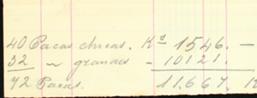 40 Pacas chicas. Kos 1546. —
32 " grandes - 10121.
72 Pacas. 11.667. K